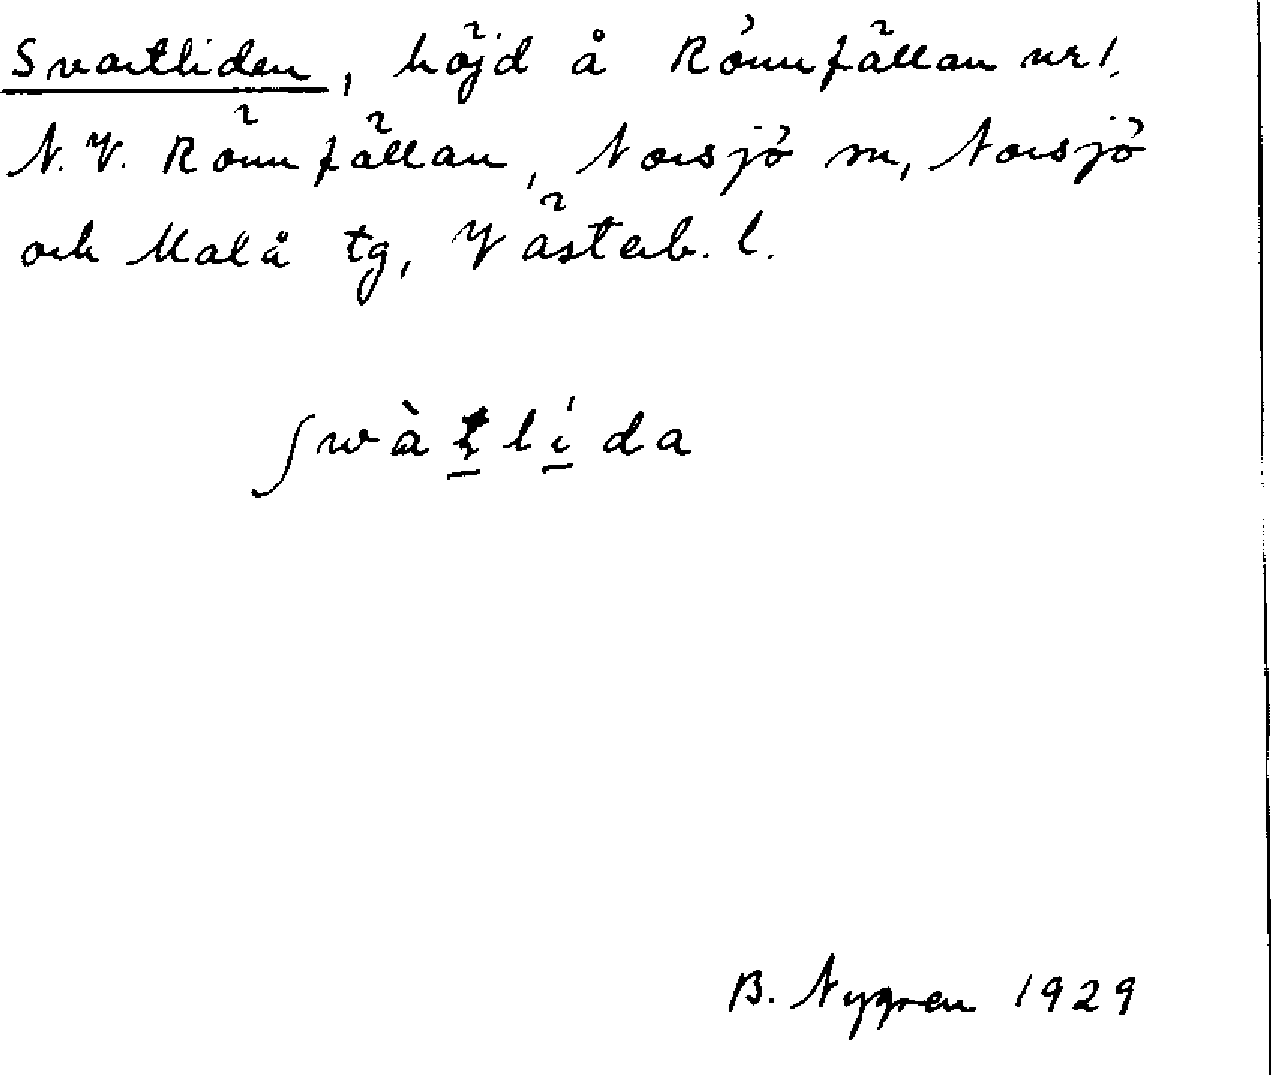 Svartliden, höjd å Rönnfällan nr 1.
N.V. Rönnfällan, Norsjö sn, Norsjö
och Malå tg, Västerb. l.
ʃwàṯlí̱da
B. Nygren 1929